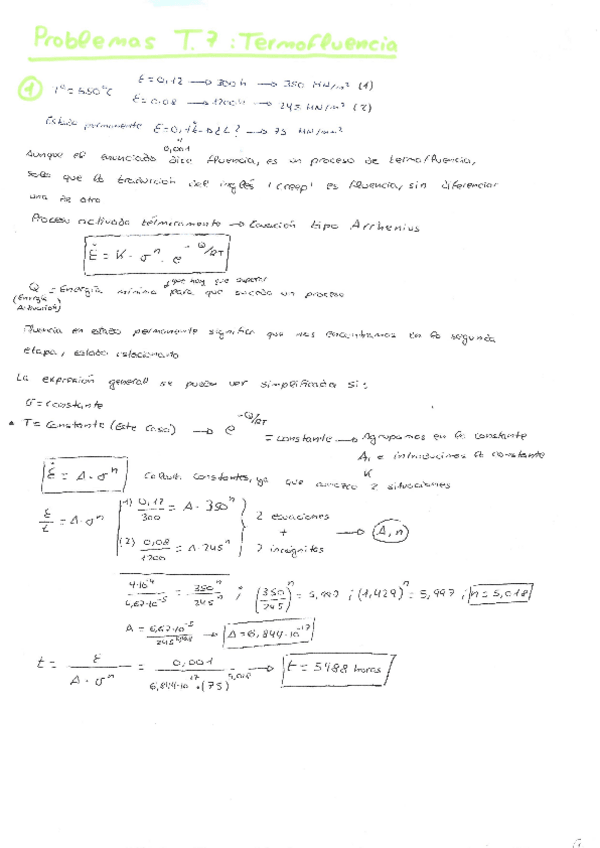 Problemas T.7: Termofluencia
① Tº = 550ºC
ε = 0,12 → 300h → 350 MN/m² (1)
ε = 0,08 → 1200h → 245 MN/m² (2)
Estado permanente ε = 0,1% → 75 MN/m²
0,001
Aunque el enunciado dice fluencia, es un proceso de termofluencia,
solo que la traducción del inglés 'creep' es fluencia, sin diferenciar
una de otra
Proceso activado térmicamente → Ecuación tipo Arrhenius
ε̇ = K · σ^n · e^(-Q/RT)
¿que hay que superar
Q = Energía mínima para que suceda un proceso
(Energía Activación)
Fluencia en estado permanente significa que nos encontramos en la segunda
etapa, estado estacionario
La expresión general se puede ver simplificada si:
σ = constante
• T = constante (Este caso) → e^(-Q/RT) = constante → Agrupamos en la constante
A, e introducimos la constante
K
ε̇ = A · σ^n
constantes, ya que 2 situaciones
ε/t = A · σ^n
(1) 0,12/300 = A · 350^n
(2) 0,08/1200 = A · 245^n
2 ecuaciones
+
2 incógnitas
→ (A, n)
4·10^-4/6,67·10^-5 = 350^n/245^n ; (350/245)^n = 5,997 ; (1,429)^n = 5,997 ; n = 5,018
A = 6,67·10^-5/245^5,018 → A = 6,844·10^-17
t = ε/(A · σ^n) = 0,001/(6,844·10^-17 · (75)^5,018) → t = 5488 horas